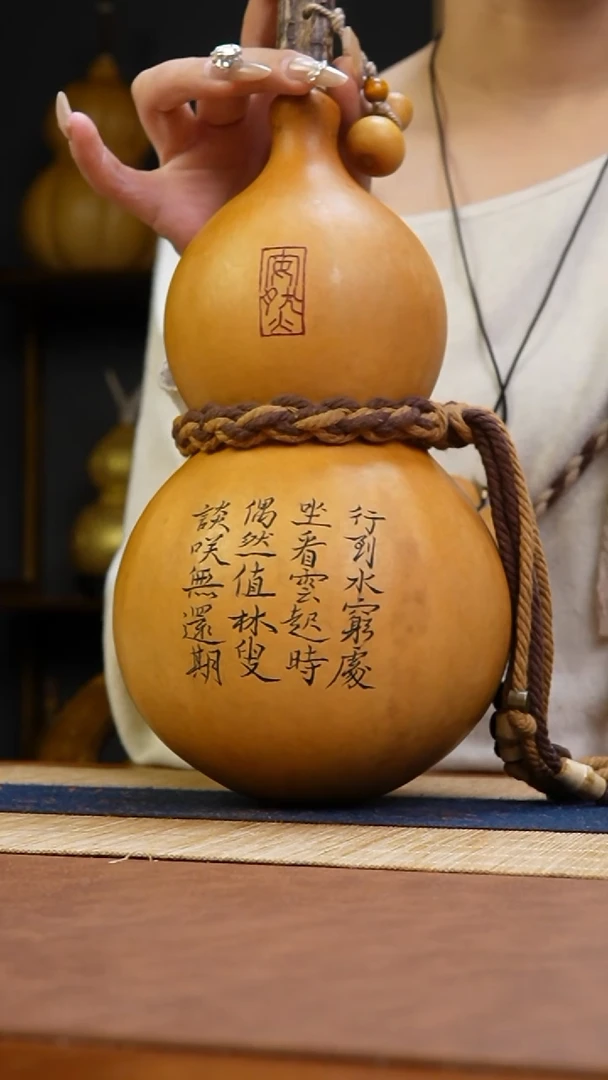 安然
行到水窮處
坐看雲起時
偶然值林叟
談咲無還期